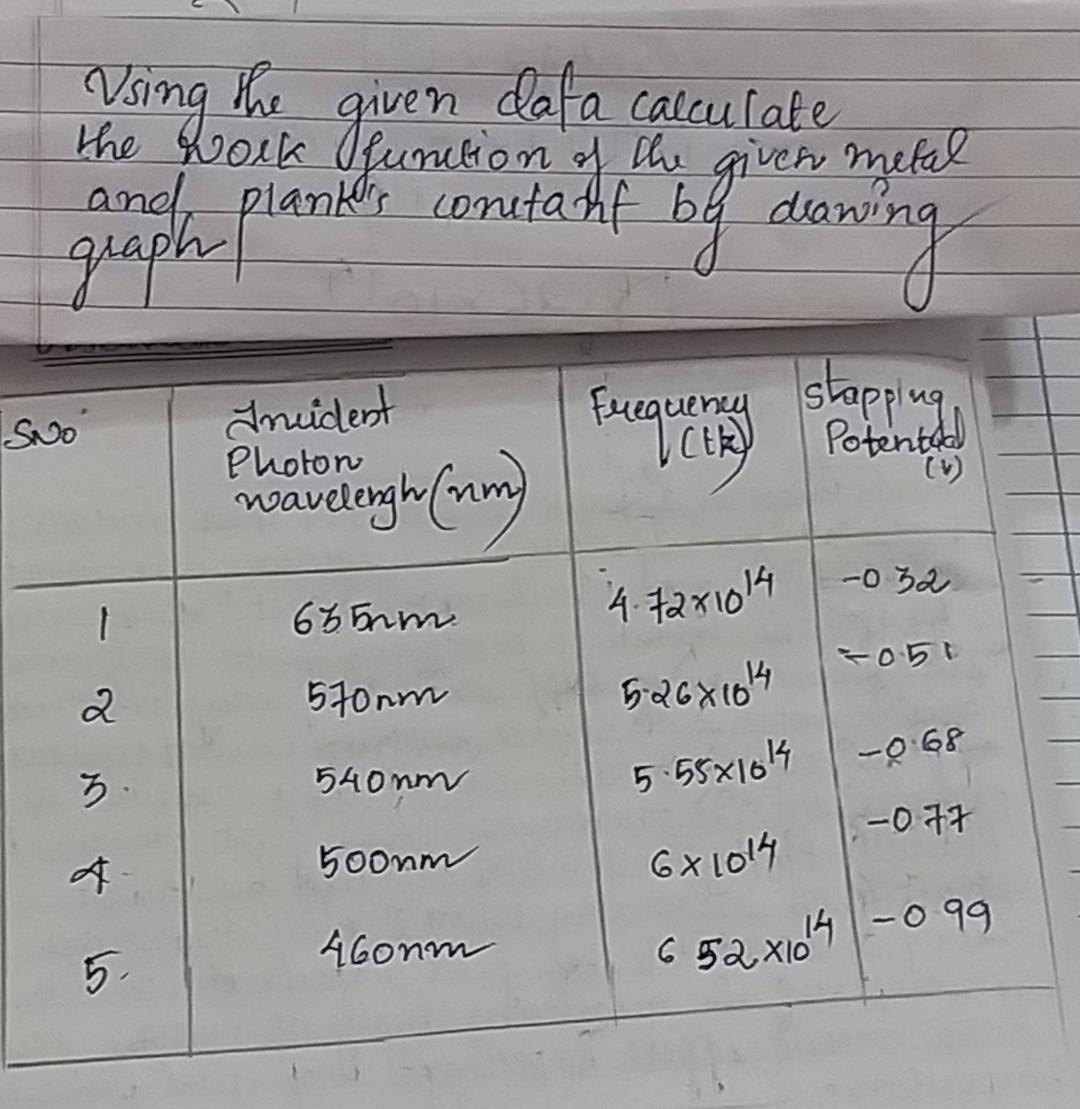 Using the given data calculate
the work function of the given metal
and plank's constant by drawing
graph
SNo
Incident
Photon
wavelengh (nm)
Frequency
(Hz)
Stopping
Potential
(v)
1 635nm 4.72x10^14 -0.32
2 570nm 5.26x10^14 -0.51
3. 540nm 5.55x10^14 -0.68
4. 500nm 6x10^14 -0.77
5. 460nm 6.52x10^14 -0.99